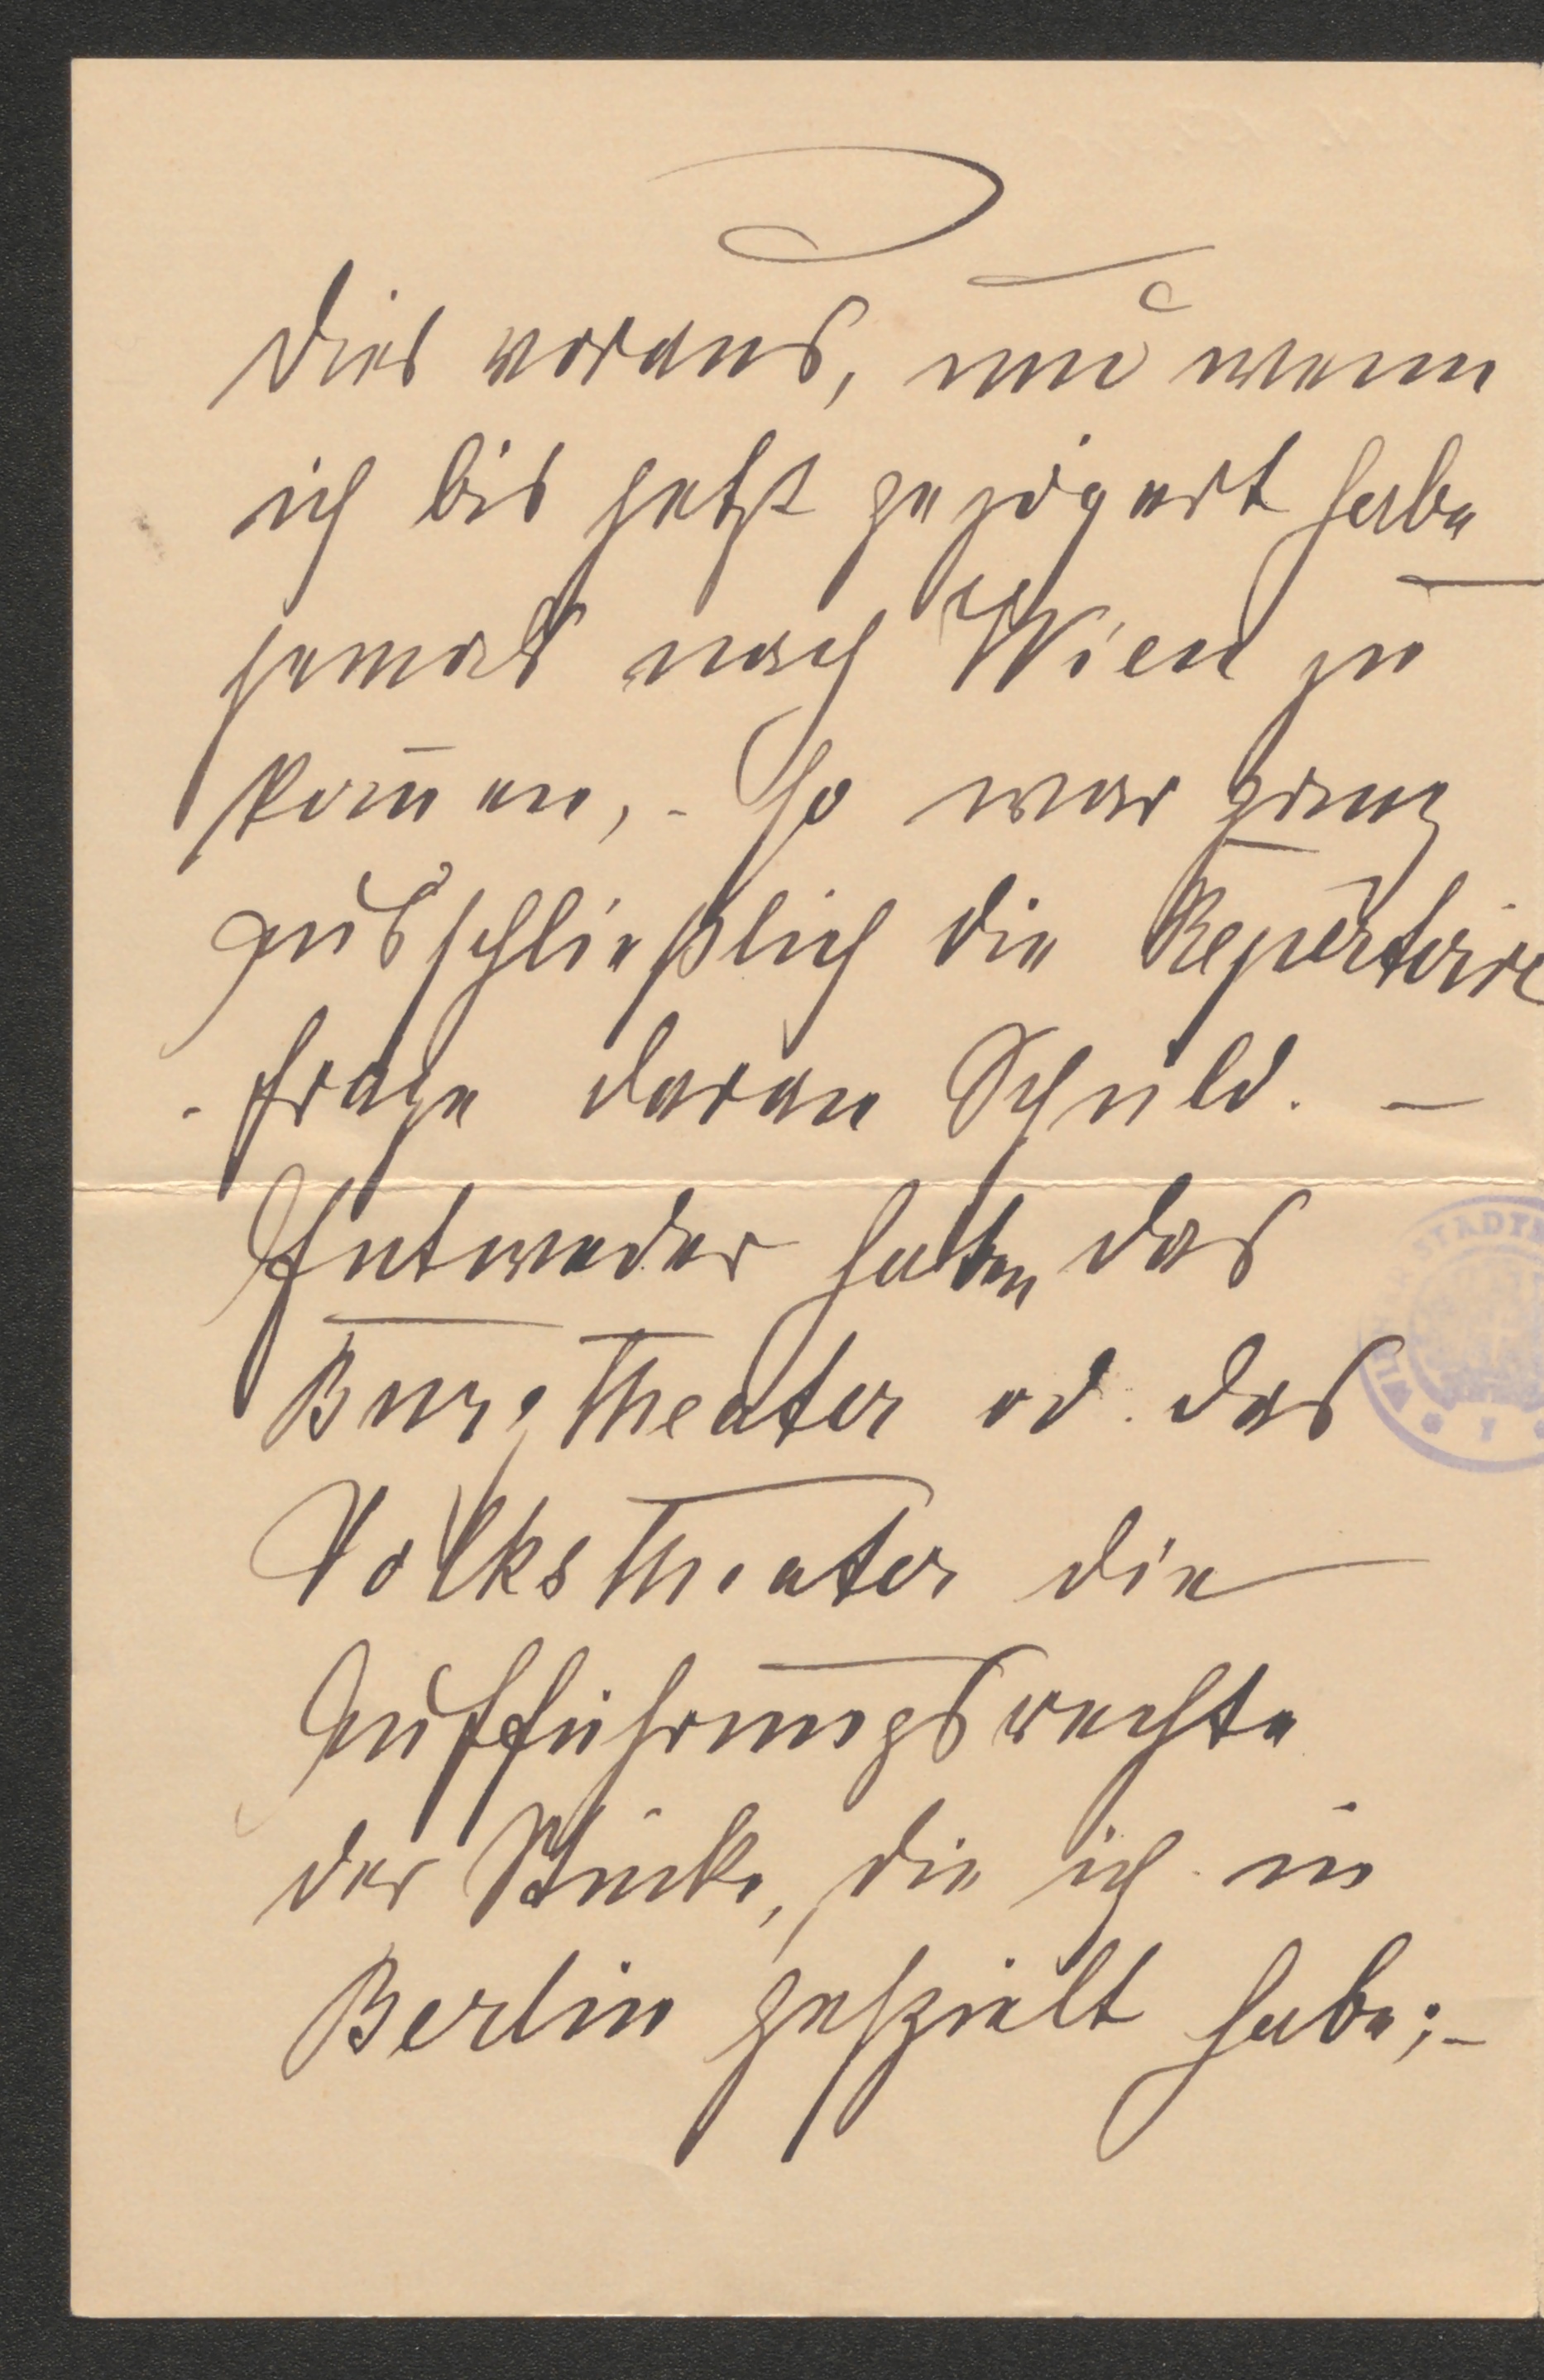 dies voraus, und wenn
ich bis jetzt gezögert habe
jemals nach Wien zu
kom̄en, - so war ganz
ausschließlich die Repertoire
- frage daran Schuld. -
Entweder hatten das
Burgtheater od. das
Volkstheater die
Aufführungsrechte
der Stücke, die ich in
Berlin gespielt habe; -